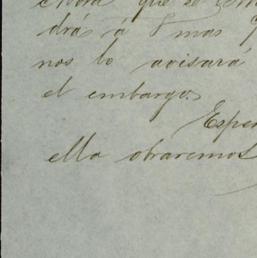 que se
drás á V mas
nos lo avisará
el embargo.
Esper
ella obraremos